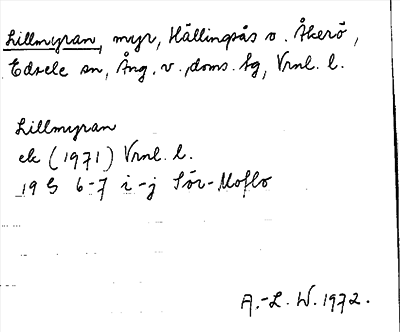 Lillmyran, myr, Hällingsås o. Åkerö,
Edsele sn, Ång. v. doms. tg, Vrnl. l.
Lillmyran
ek (1971) Vrnl. l.
19 G 6-7 i-j Sör-Moflo
A.-L. W. 1972.